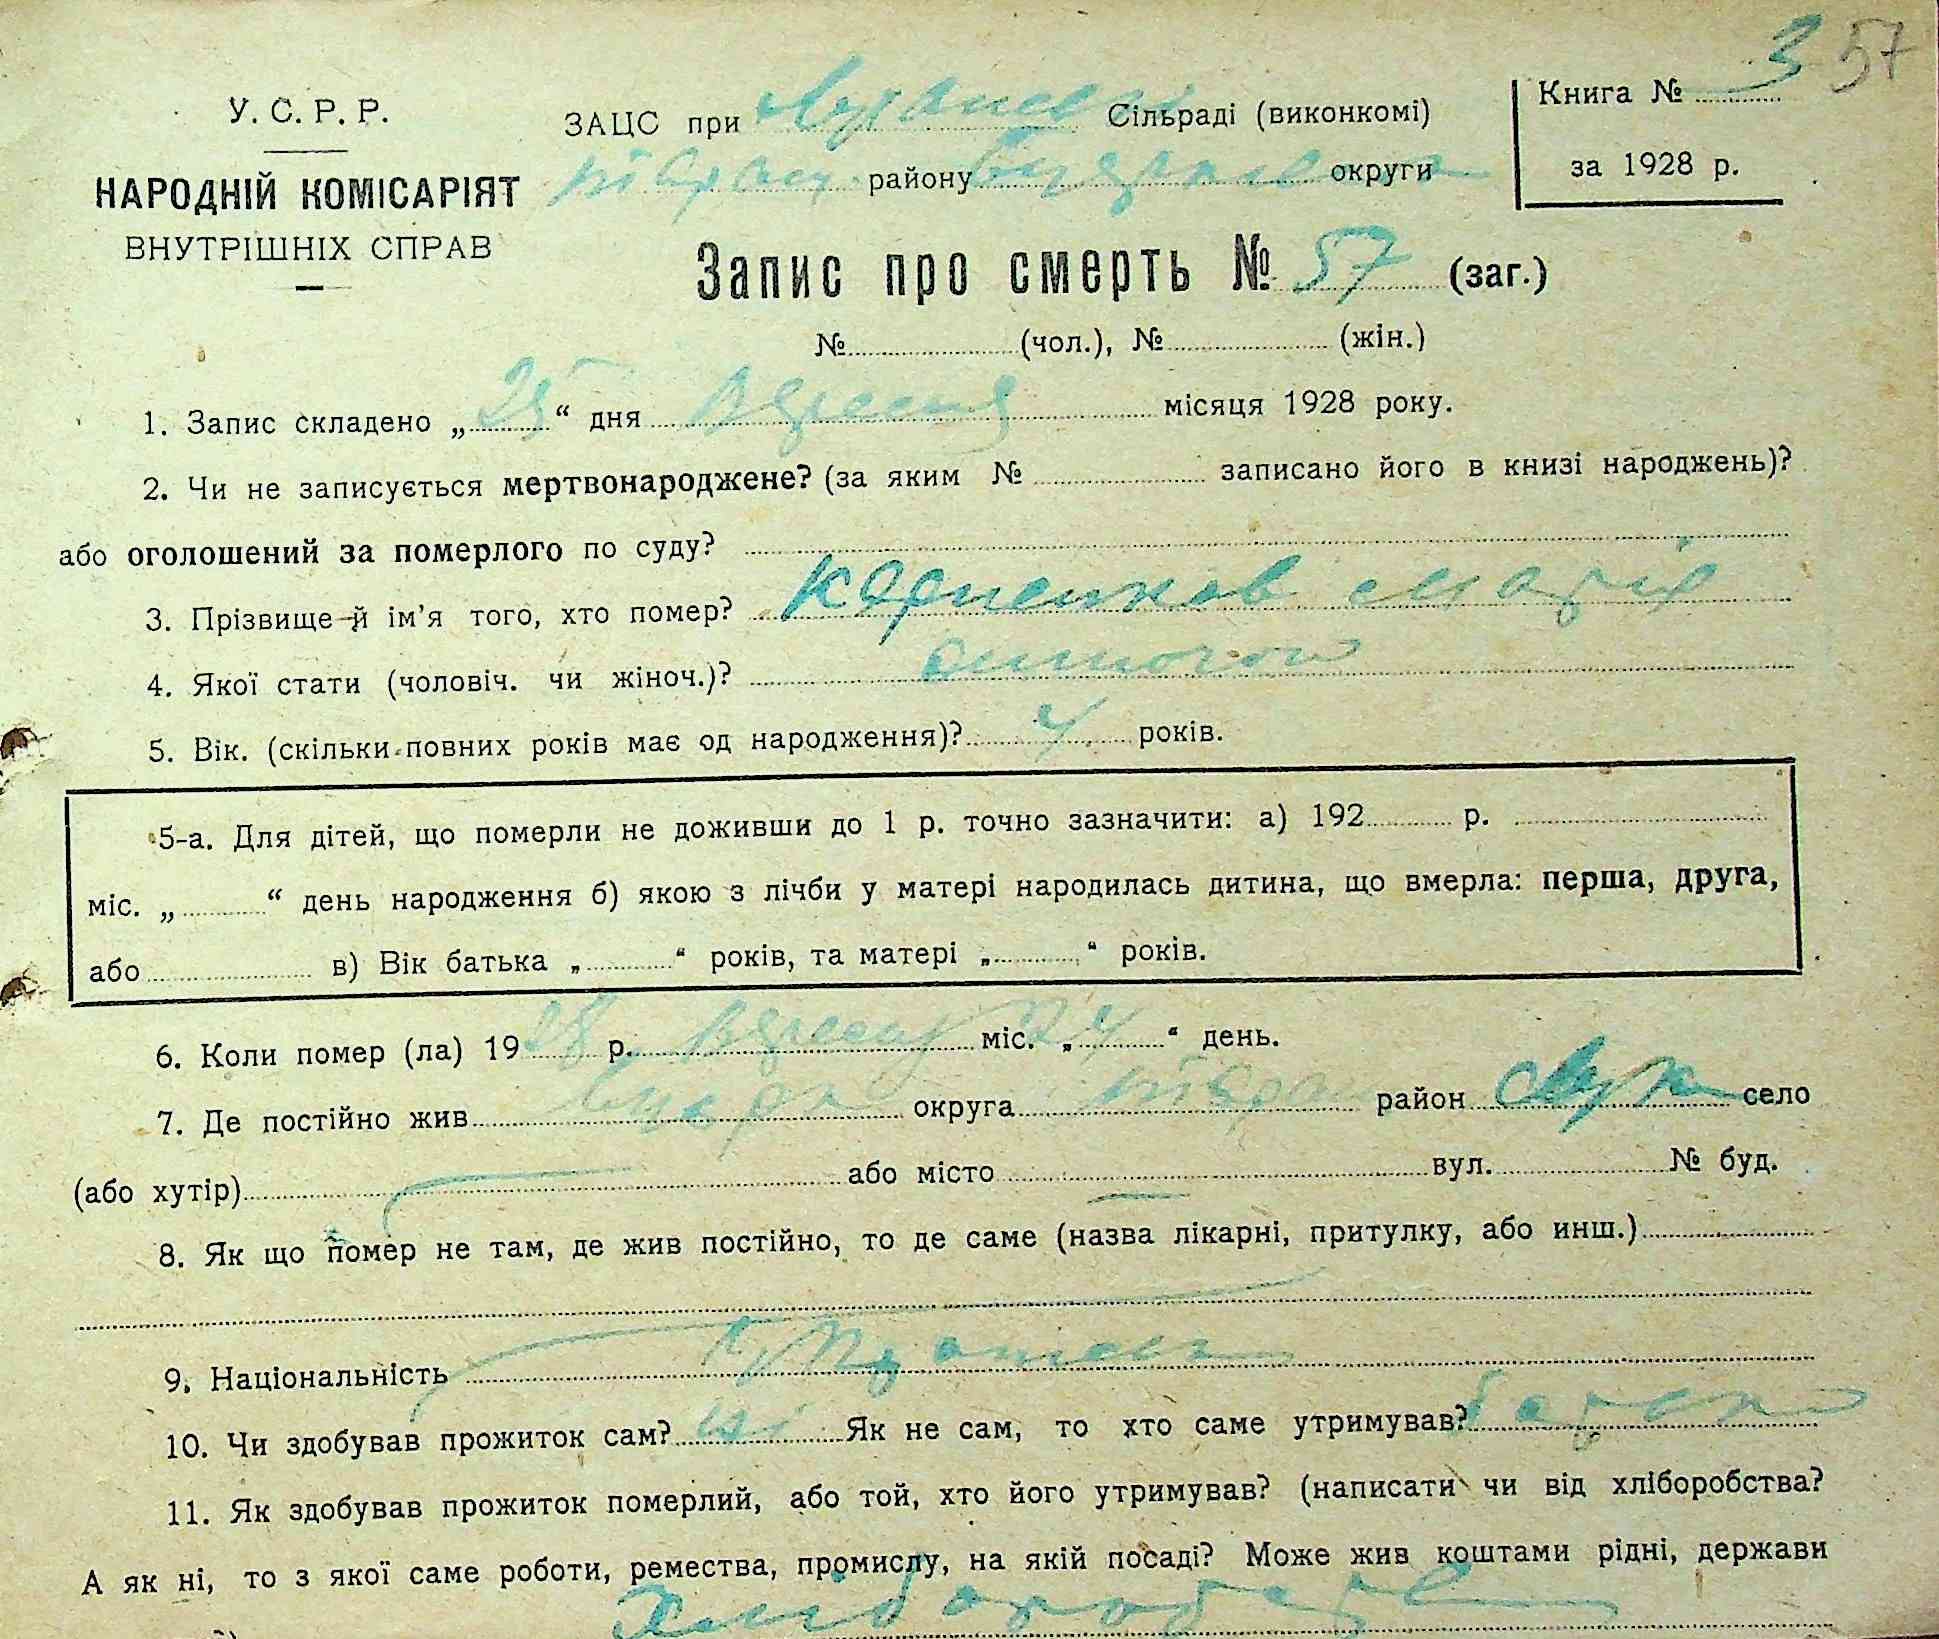 3 57
У. С. Р. Р.
НАРОДНІЙ КОМІСАРІЯТ
ВНУТРІШНІХ СПРАВ
ЗАЦС при Сільраді (виконкомі)
району округи
Книга № 3
за 1928 р.
Запис про смерть № 57 (заг.)
№ (чол.), № (жін.)
1. Запис складено „ 25 “ дня вересня місяця 1928 року.
2. Чи не записується мертвонароджене? (за яким № записано його в книзі народжень)?
або оголошений за померлого по суду?
3. Прізвище й ім’я того, хто помер? Марія
4. Якої стати (чоловіч. чи жіноч.)?
5. Вік. (скільки повних років має од народження)? 4 років.
5-а. Для дітей, що померли не доживши до 1 р. точно зазначити: а) 192 р.
міс. „ “ день народження б) якою з лічби у матері народилась дитина, що вмерла: перша, друга,
або в) Вік батька „ “ років, та матері „ “ років.
6. Коли помер (ла) 19 28 р. вересня міс. „ 24 “ день.
7. Де постійно жив округа район село
(або хутір) або місто вул. № буд.
8. Як що помер не там, де жив постійно, то де саме (назва лікарні, притулку, або инш.)
9. Національність
10. Чи здобував прожиток сам? ні Як не сам, то хто саме утримував? батько
11. Як здобував прожиток померлий, або той, хто його утримував? (написати чи від хліборобства?
А як ні, то з якої саме роботи, ремества, промислу, на якій посаді? Може жив коштами рідні, держави